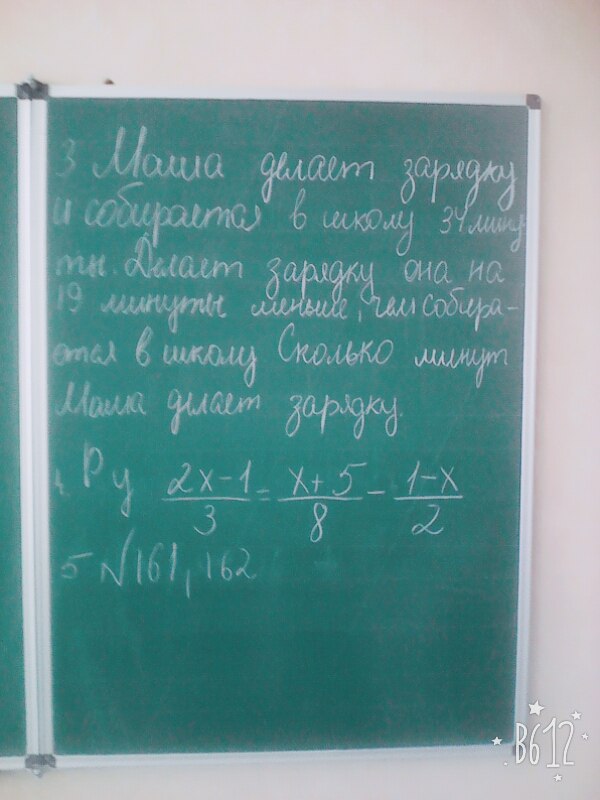 3 Маша делает зарядку
и собирается в школу 34 мину-
ты. Делает зарядку она на
19 минуты меньше, чем собира-
ется в школу Сколько минут
Маша делает зарядку.
4. Ру (2x-1)/3 = (x+5)/8 - (1-x)/2
5 №161, 162
B612